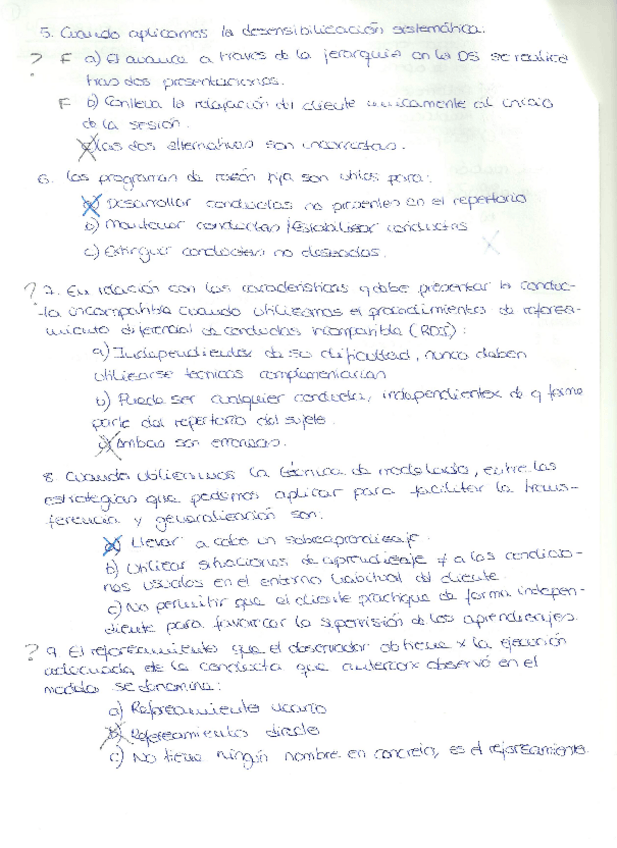 5. Cuando aplicamos la desensibilización sistemática:
? F a) El avance a través de la jerarquía en la DS se realiza
tras dos presentaciones.
F b) Conlleva la relajación del cliente únicamente al inicio
de la sesión.
c) Las dos alternativas son incorrectas.
6. Los programas de razón fija son útiles para:
a) Desarrollar conductas no presentes en el repertorio
b) Mantener conductas / Estabilizar conductas
c) Extinguir conductas no deseadas.
? 7. En relación con las características q debe presentar la conduc-
-ta incompatible cuando utilizamos el procedimientos de reforza-
miento diferencial de conductas incompatible (RDI):
a) Independientes de su dificultad, nunca deben
utilizarse técnicas complementarias
b) Puede ser cualquier conducta, independientex de q forme
parte del repertorio del sujeto.
c) Ambas son erróneas.
8. Cuando utilizamos la técnica de modelado, entre las
estrategias que podemos aplicar para facilitar la trans-
ferencia y generalización son:
a) Llevar a cabo un sobreaprendizaje.
b) Utilizar situaciones de aprendizaje ≠ a las condicio-
nes usuales en el entorno habitual del cliente.
c) No permitir que el cliente practique de forma indepen-
diente para favorecer la supervisión de los aprendizajes.
? 9. El reforzamiento que el observador obtiene x la ejecución
adecuada de la conducta que anteriorx observó en el
modelo se denomina:
a) Reforzamiento vicario
b) Reforzamiento directo
c) No tiene ningún nombre en concreto, es el reforzamiento.